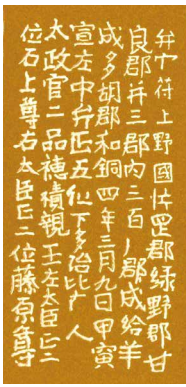 弁官符上野國片罡郡緑野郡甘
良郡并三郡内三百戸郡成給羊
成多胡郡和銅四年三月九日甲寅
宣左中弁正五位下多治比真人
太政官二品穂積親王左太臣正二
位石上尊右太臣正二位藤原尊